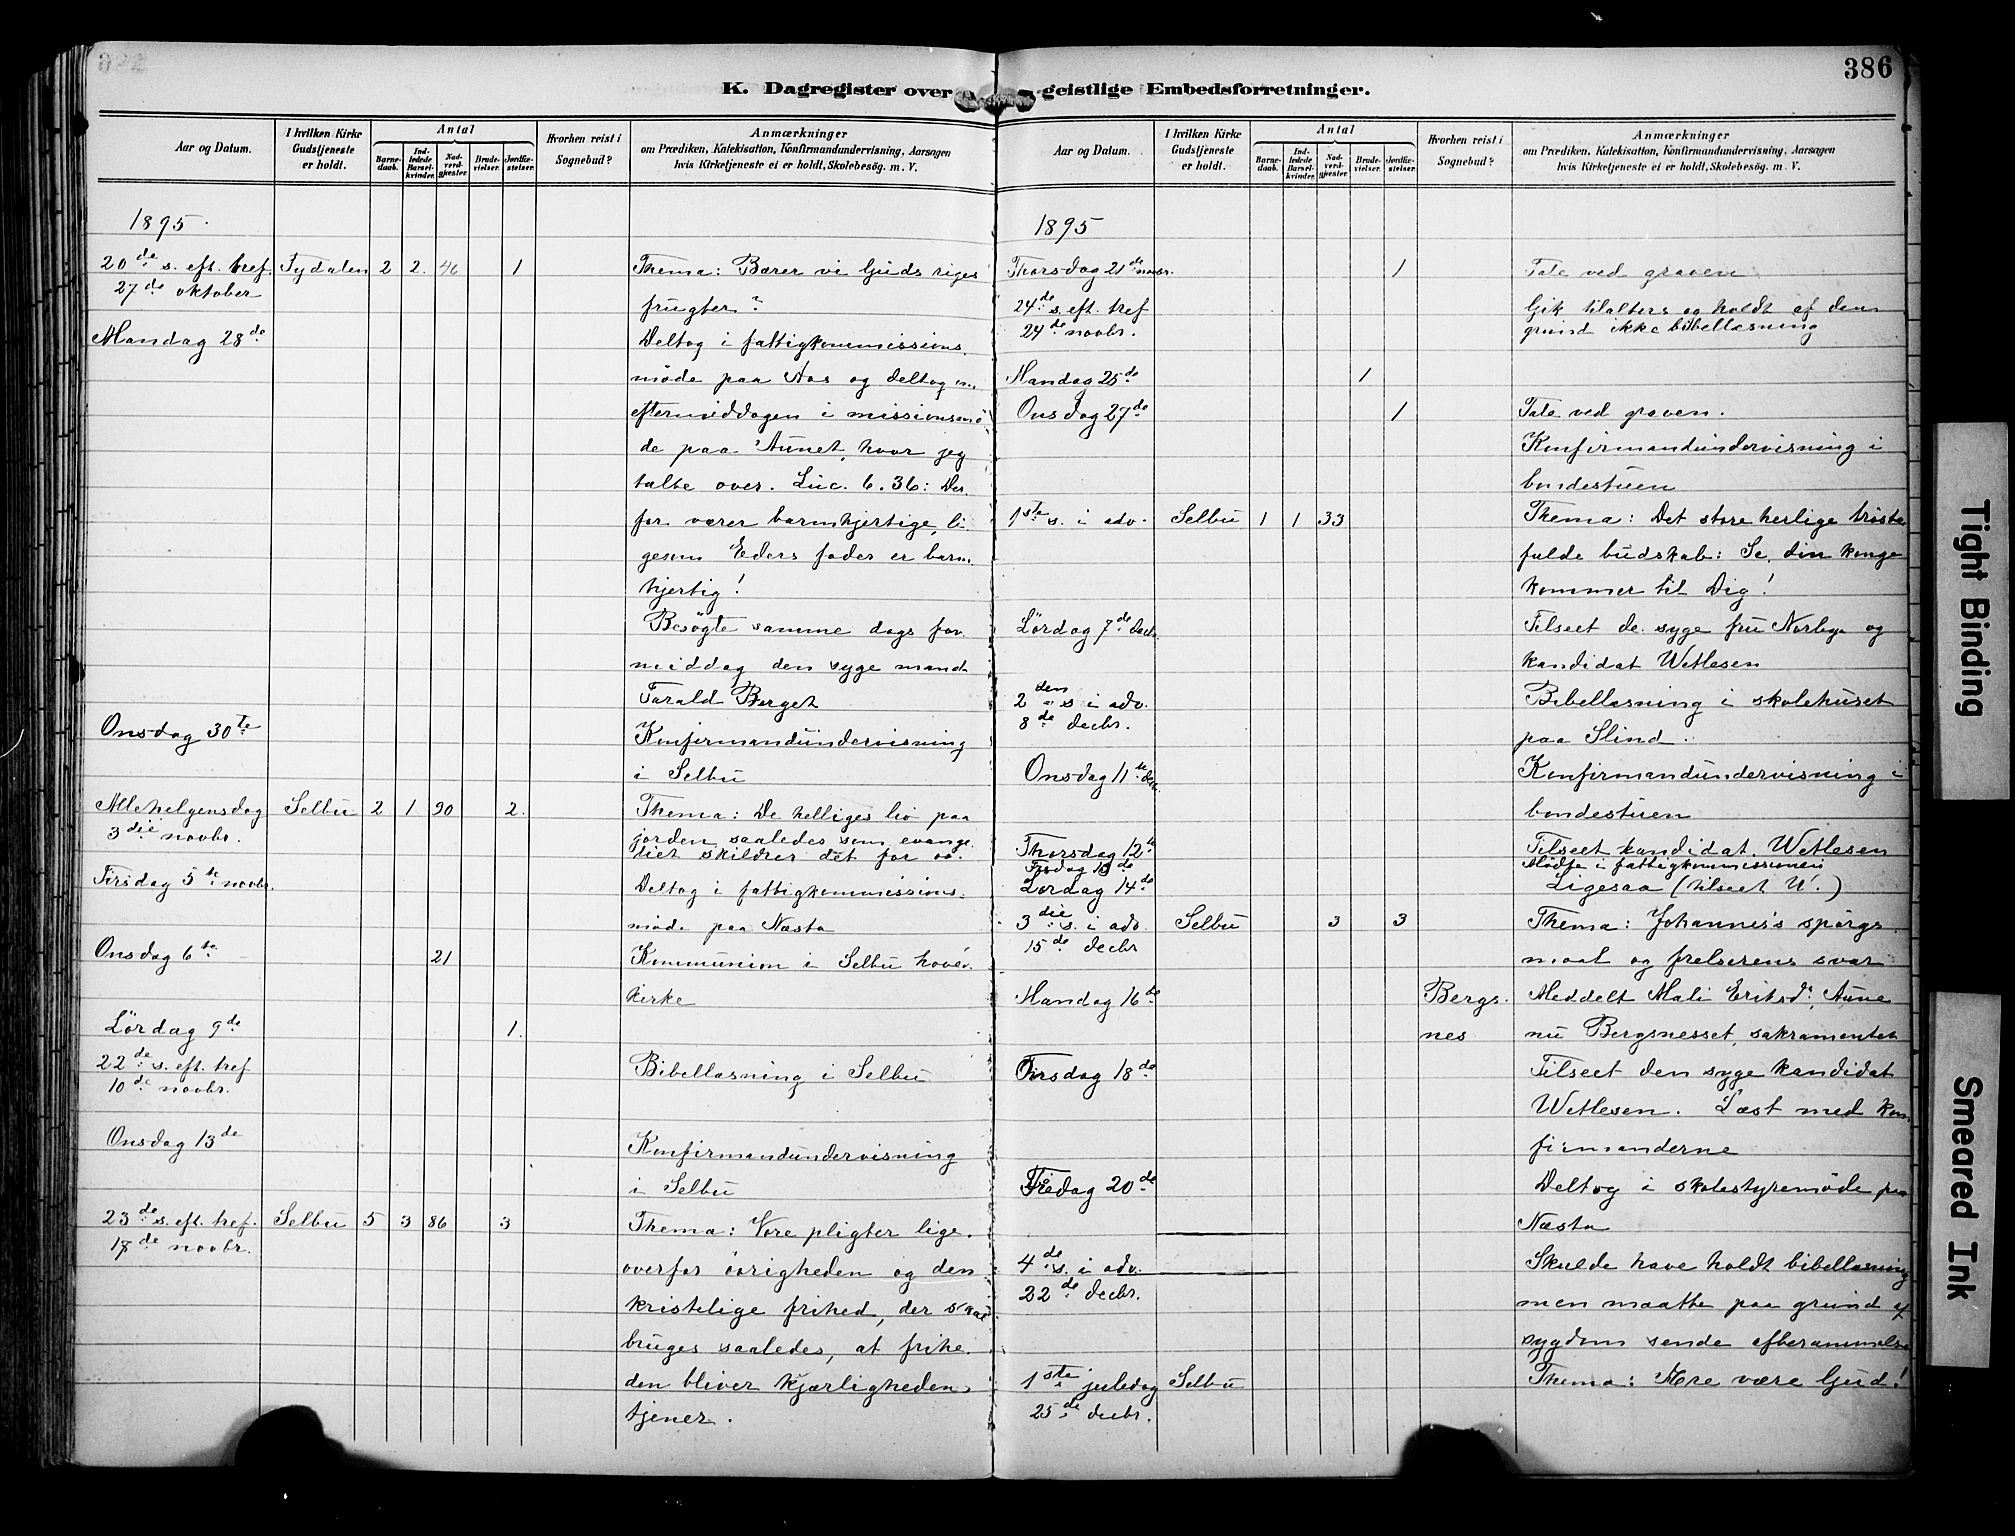 386
K. Dagregister over geistlige Embedsforretninger.
Aar og Datum.
I hvilken Kirke Gudstjeneste er holdt.
Antal
Barnedaab.
Indledede Barselkvinder.
Nadverdgjester.
Brudevielser.
Jordfæstelser.
Hvorhen reist i Sognebud?
Anmærkninger
om Prædiken, Katekisation, Konfirmandundervisning, Aarsagen
hvis Kirketjeneste ei er holdt, Skolebesög. m. V.
1895.
20de s. eft. tref. Tydalen 2 2. 46 1 Thema: Bærer vi Guds riges
27de oktober
frugter?
Mandag 28de Deltog i fattigkommissions
møde paa Aas og deltog
eftermiddagen i missionsmö
de paa Aunet, hvor jeg
talte over. Luc. 6.36: Der
for værer barmhjertige, li
gesom Eders fader er barm
hjertig!
Besögte samme dags for
middag den syge mand
Tarald Berget
Onsdag 30te Konfirmandundervisning
i Selbu
Allehelgensdag Selbu 2 1 90 2. Thema: De helliges liv paa
3die novbr. jorden saaledes som evange
liet skildrer det for os.
Tirsdag 5te novbr. Deltog i fattigkommissions
møde paa Næsta
Onsdag 6te 21 Kommunion i Selbu hoved
kirke
Lördag 9de 1.
22de s. eft. tref Bibellæsning i Selbu
10de novbr.
Onsdag 13de Konfirmandundervisning
i Selbu
23de s. eft. tref. Selbu 5 3 86 3 Thema: Vore pligter lige
17de novbr.
overfor övrigheden og den
kristelige frihed, der skal
bruges saaledes, at frihe
den bliver kjærlighedens
tjener.
Aar og Datum.
I hvilken Kirke Gudstjeneste er holdt.
Antal
Barnedaab.
Indledede Barselkvinder.
Nadverdgjester.
Brudevielser.
Jordfæstelser.
Hvorhen reist i Sognebud?
Anmærkninger
om Prædiken, Katekisation, Konfirmandundervisning, Aarsagen
hvis Kirketjeneste ei er holdt, Skolebesög. m. V.
1895
Thorsdag 21de novbr. 1 Tale ved graven
24de s. eft. tref Gik tilalters og holdt af den
24de novbr. grund ikke bibellæsning
Mandag 25de 1
Onsdag 27de 1 Tale ved graven.
Konfirmandundervisning i
bondestuen
1ste s. i adv. Selbu 1 1 33 Thema: Det store herlige tröste
fulde budskab: Se, din konge
kommer til Dig!
Lördag 7de decbr Tilseet de syge fru Norbye og
kandidat Wetlesen
2den s i adv. Bibellæsning i skolehuset
8de decbr.
paa Slind.
Onsdag 11te decbr. Konfirmandundervisning i
bondestuen
Thorsdag 12te Tilseet kandidat Wetlesen
Fredag 13de Mödte i fattigkommissionen
Lördag 14de Ligesaa (tilseet W.)
3die s. i adv. Selbu 3 3 Thema: Johannes's spörgs
15de decbr
maal og frelserens svar
Mandag 16de Bergs Meddelt Mali Eriksd. Aune
nes nu Bergsnesset, sakramentet
Onsdag 18de Tilseet den syge kandidat
Wetlesen. Læst med kon
firmanderne
Fredag 20de Deltog i skolestyremöde paa
Næsta
4de s. i adv. Skulde have holdt bibellæsning
22de decbr.
men maatte paa grund af
sygdom sende afberammelse
1ste juledag Selbu Thema: Ære være Gud!
25de decbr.
Tight Binding
Smeared Ink